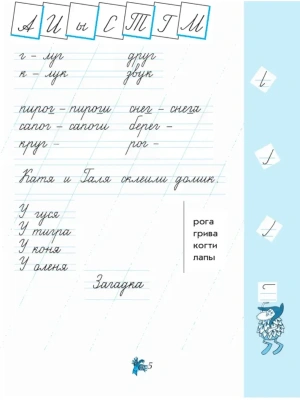 А И ы С Т Г М
г – луг друг
к – лук звук
пирог – пироги снег – снега
сапог – сапоги берег –
круг – рог –
Катя и Галя склеили домик.
У гуся
У тигра
У коня
У оленя
рога
грива
когти
лапы
Загадка
5